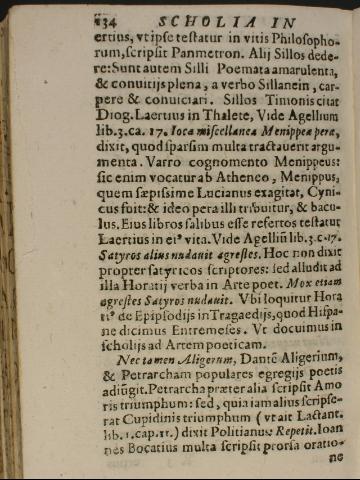 234 SCHOLIA IN
ertius, vt ipse testatur in vitis Philosopho-
rum, scripsit Panmetron. Alij Sillos dede-
re: Sunt autem Silli Poemata amarulenta,
& conuitijs plena, a verbo Sillanein, car-
pere & conuiciari. Sillos Timonis citat
Diog. Laertius in Thalete, Vide Agellium
lib.3.ca. 17. Ioca miscellanea Menippea pera,
dixit, quod sparsim multa tractauerit argu-
menta. Varro cognomento Menippeus:
sic enim vocatur ab Atheneo, Menippus,
quem sæpissime Lucianus exagitat, Cyni-
cus fuit: & ideo pera illi tribuitur, & bacu-
lus. Eius libros salibus esse refertos testatur
Laertius in ei⁹ vita. Vide Agelliū lib.3.c.17.
Satyros alius nudauit agrestes. Hoc non dixit
propter satyricos scriptores: sed alludit ad
illa Horatij verba in Arte poet. Mox etiam
agrestes Satyros nudauit. Vbi loquitur Hora
ti⁹ de Epipsodijs in Tragaedijs, quod Hispa-
ne dicimus Entremeses. Vt docuimus in
scholijs ad Artem poeticam.
Nec tamen Aligerum, Dantē Aligerium,
& Petrarcham populares egregijs poetis
adiūgit. Petrarcha præter alia scripsit Amo
ris triumphum: sed, quia iam alius scripse-
rat Cupidinis triumphum (vt ait Lactant.
lib.1.cap.11.) dixit Politianus: Repetit. Ioan
nes Bocatius multa scripsit prorsa oratio-
ne